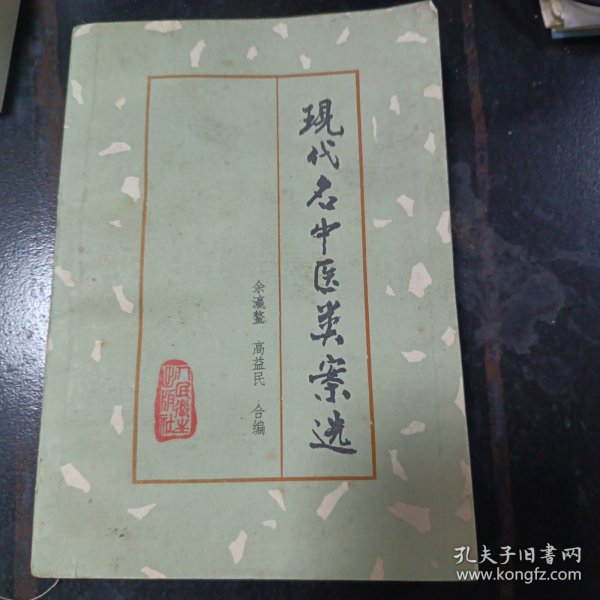 现代名中医类案选
余瀛鳌 高益民 合编
人民卫生
出版社
孔夫子旧书网
www.kongfz.com